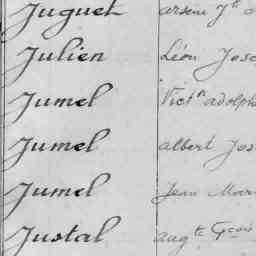 Juguet arsène Jh
Julien Léon Jose
Jumel Victn adolph
Jumel albert Jos
Jumel Jean Mar
Justal augte Fçois